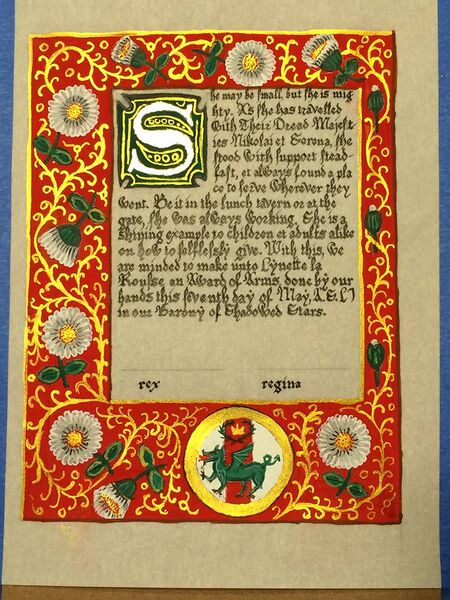 She may be small, but she is mig
hty. As she has travelled
With Their Dread Majest
ies Nikolai et Serena, she
stood With support stead-
fast, et always found a pla
ce to serve Wherever they
Went. Be it in the lunch tavern or at the
gate, she was always working. She is a
shining example to children et adults alike
on how to selflessly give. With this, We
are minded to make unto Lynette la
Rousse an Award of Arms, done by our
hands this seventh day of May, A.S. LI
in our Barony of Shadowed Stars.
rex regina